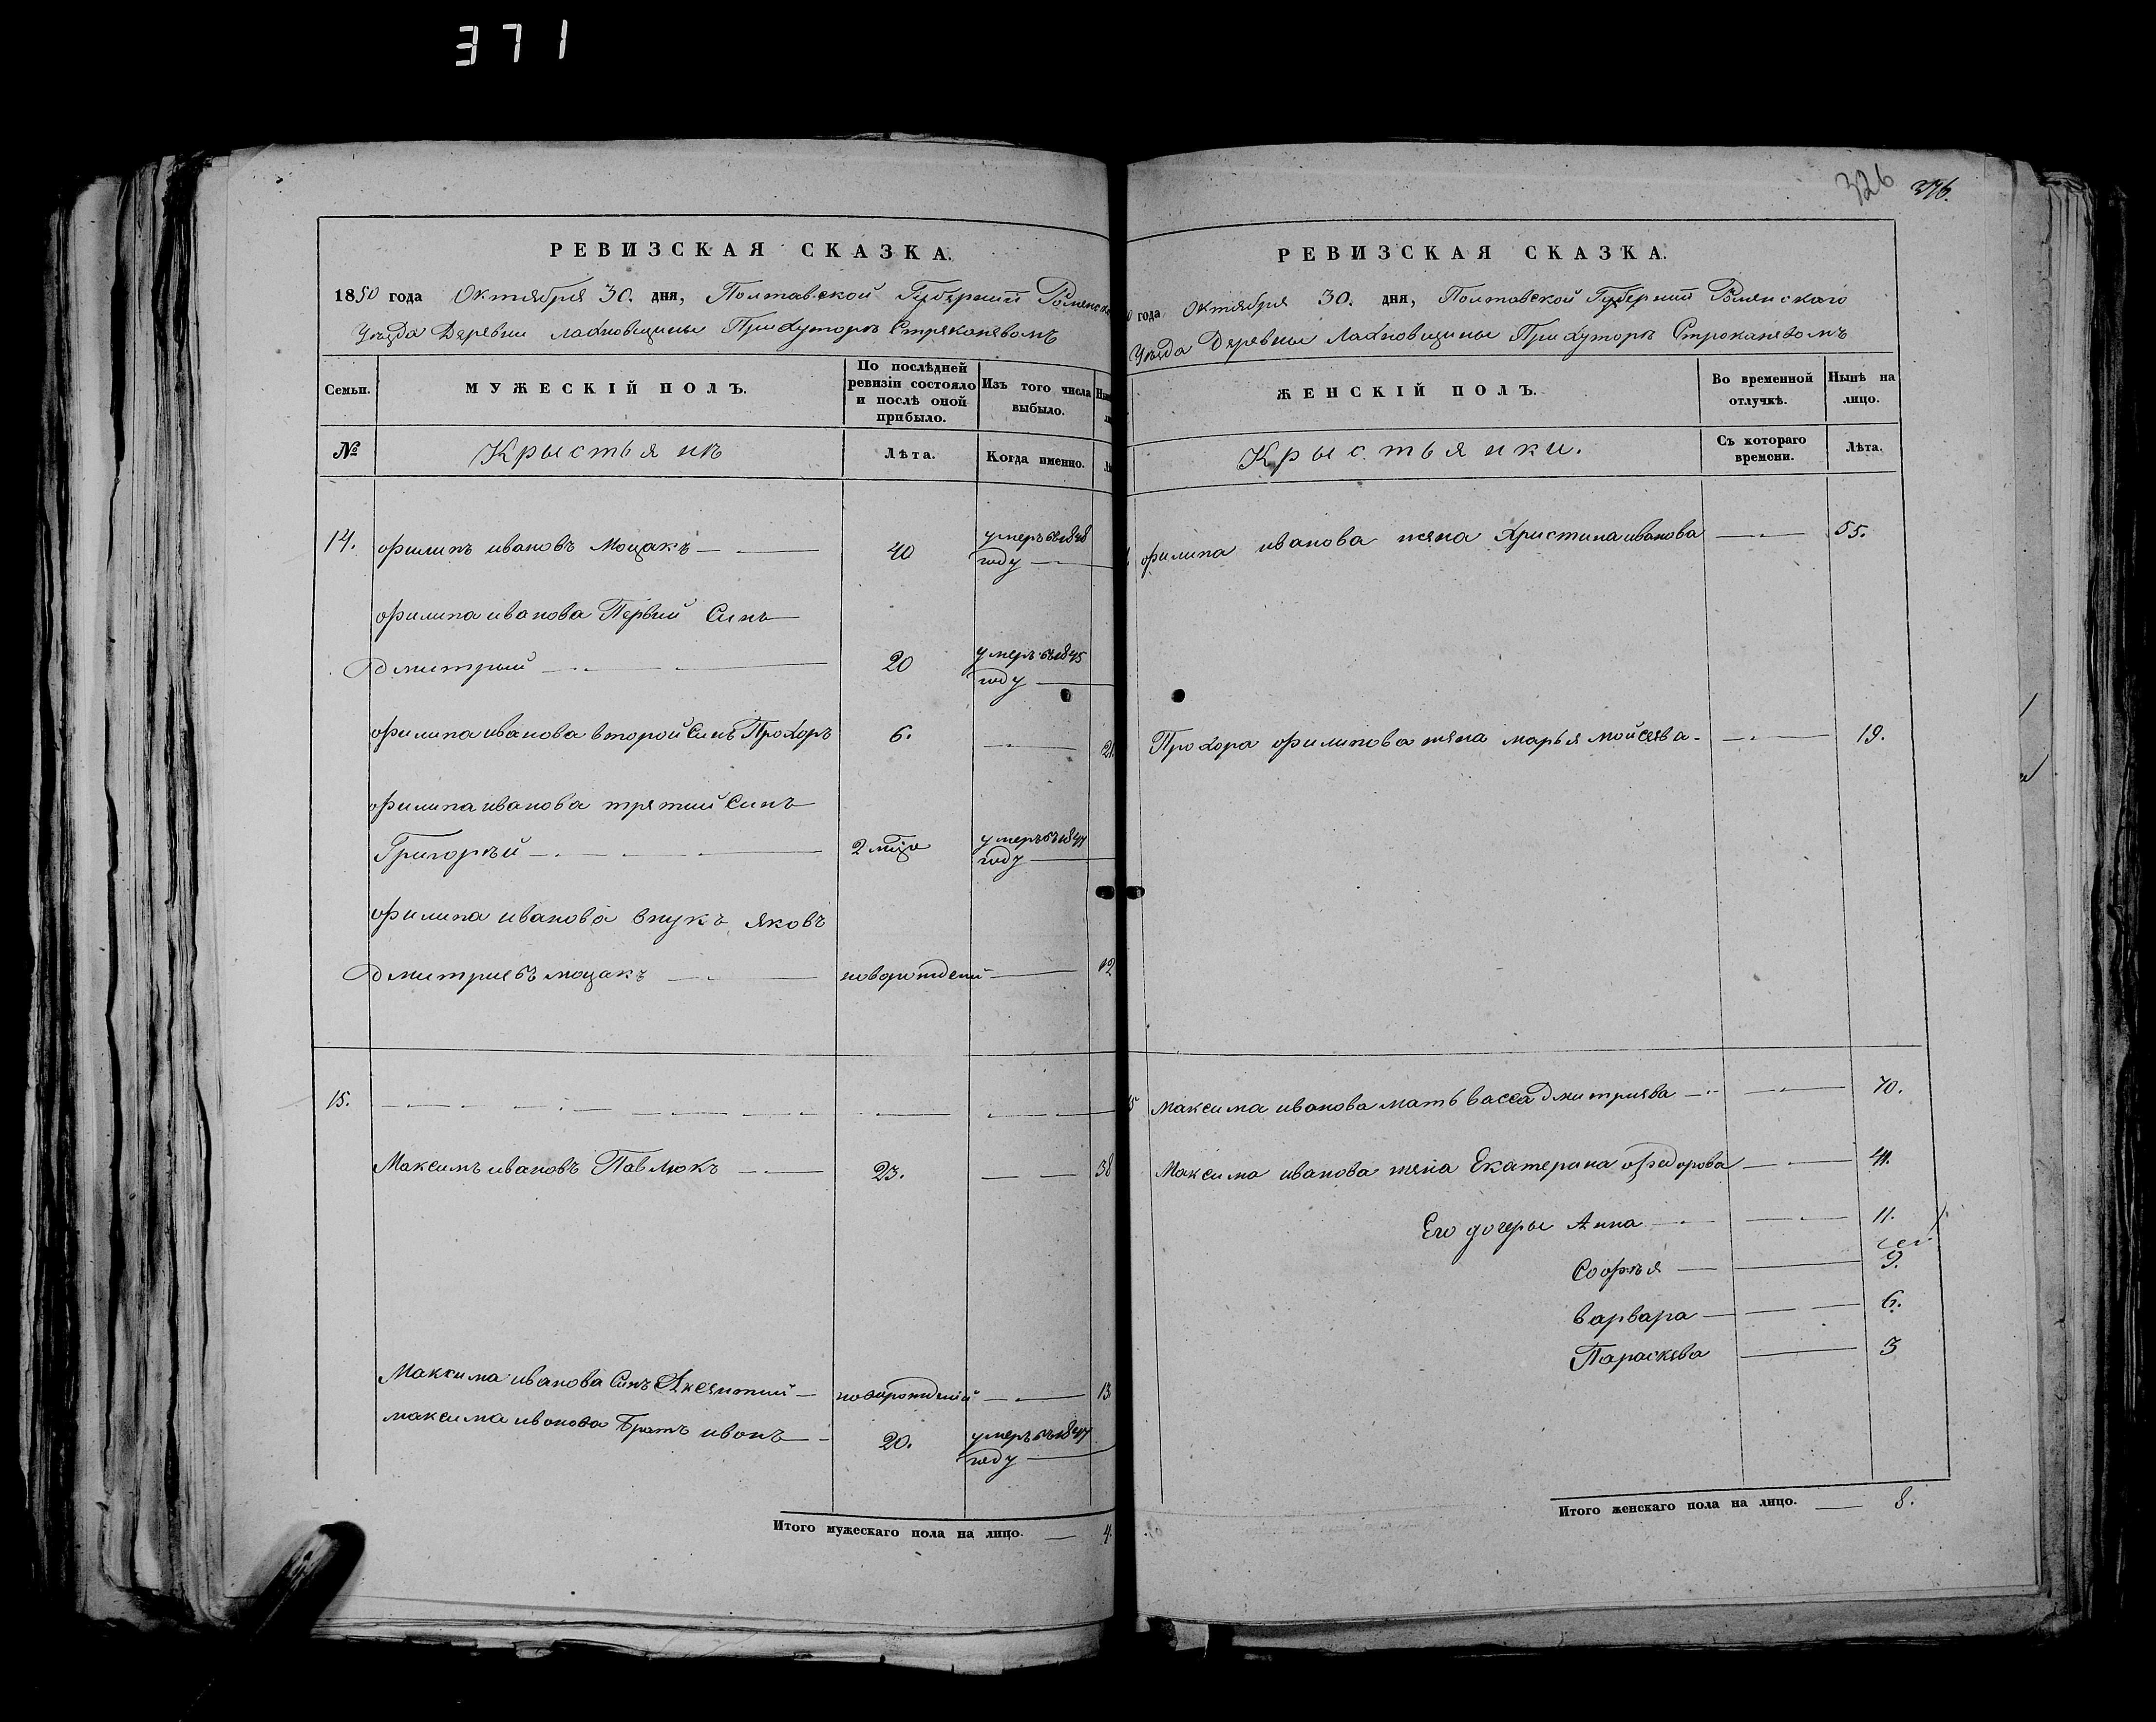 371
326 376.
РЕВИЗСКАЯ СКАЗКА.
1850 года Октября 30. дня, Полтавской Губернии Роменска
Уезда Деревни Лахновщины При Хуторе
Семьи.
МУЖЕСКІЙ ПОЛЪ.
По послѣдней ревизіи состояло и послѣ оной прибыло.
Изъ того числа выбыло.
№
Крыстьянъ
Лѣта.
Когда именно.
14. филипъ ивановъ Моцакъ 40 умеръ въ 1848
году
филипа иванова Первий Синъ
Дмитрий 20 умеръ въ 1845
году
филипа иванова второй Синъ Прохоръ 6. 21.
филипа иванова третий Синъ
Григорей 2 умеръ въ 1847
году
филипа иванова внукъ яковъ
Дмитриевъ моцакъ новорожденй 12
15.
Максимъ ивановъ Павлюкъ 23. 38
Максима иванова Синъ Аксентий новорожденій 13
максима иванова Братъ иванъ 20. умеръ въ 1847
году
Итого мужескаго пола на лицо. 4.
РЕВИЗСКАЯ СКАЗКА.
0 года Октября 30. дня, Полтавской Губернии Роменского
Уезда Деревны Лахновщины При Хуторе Строканевомъ
ЖЕНСКІЙ ПОЛЪ.
Во временной отлучкѣ.
Нынѣ на лицо.
Крыстьянки.
Съ котораго времени.
Лѣта.
филипа иванова жена Христина иванова 55.
Прохора филипова жена марья мойсеева 19.
Максима иванова мать васса Дмитриева 70.
Максима иванова жена Екатерина федорова 41.
Его дочеры Анна 11.
Софья 9.
варвара 6.
Параскева 3
Итого женскаго пола на лицо. 8.